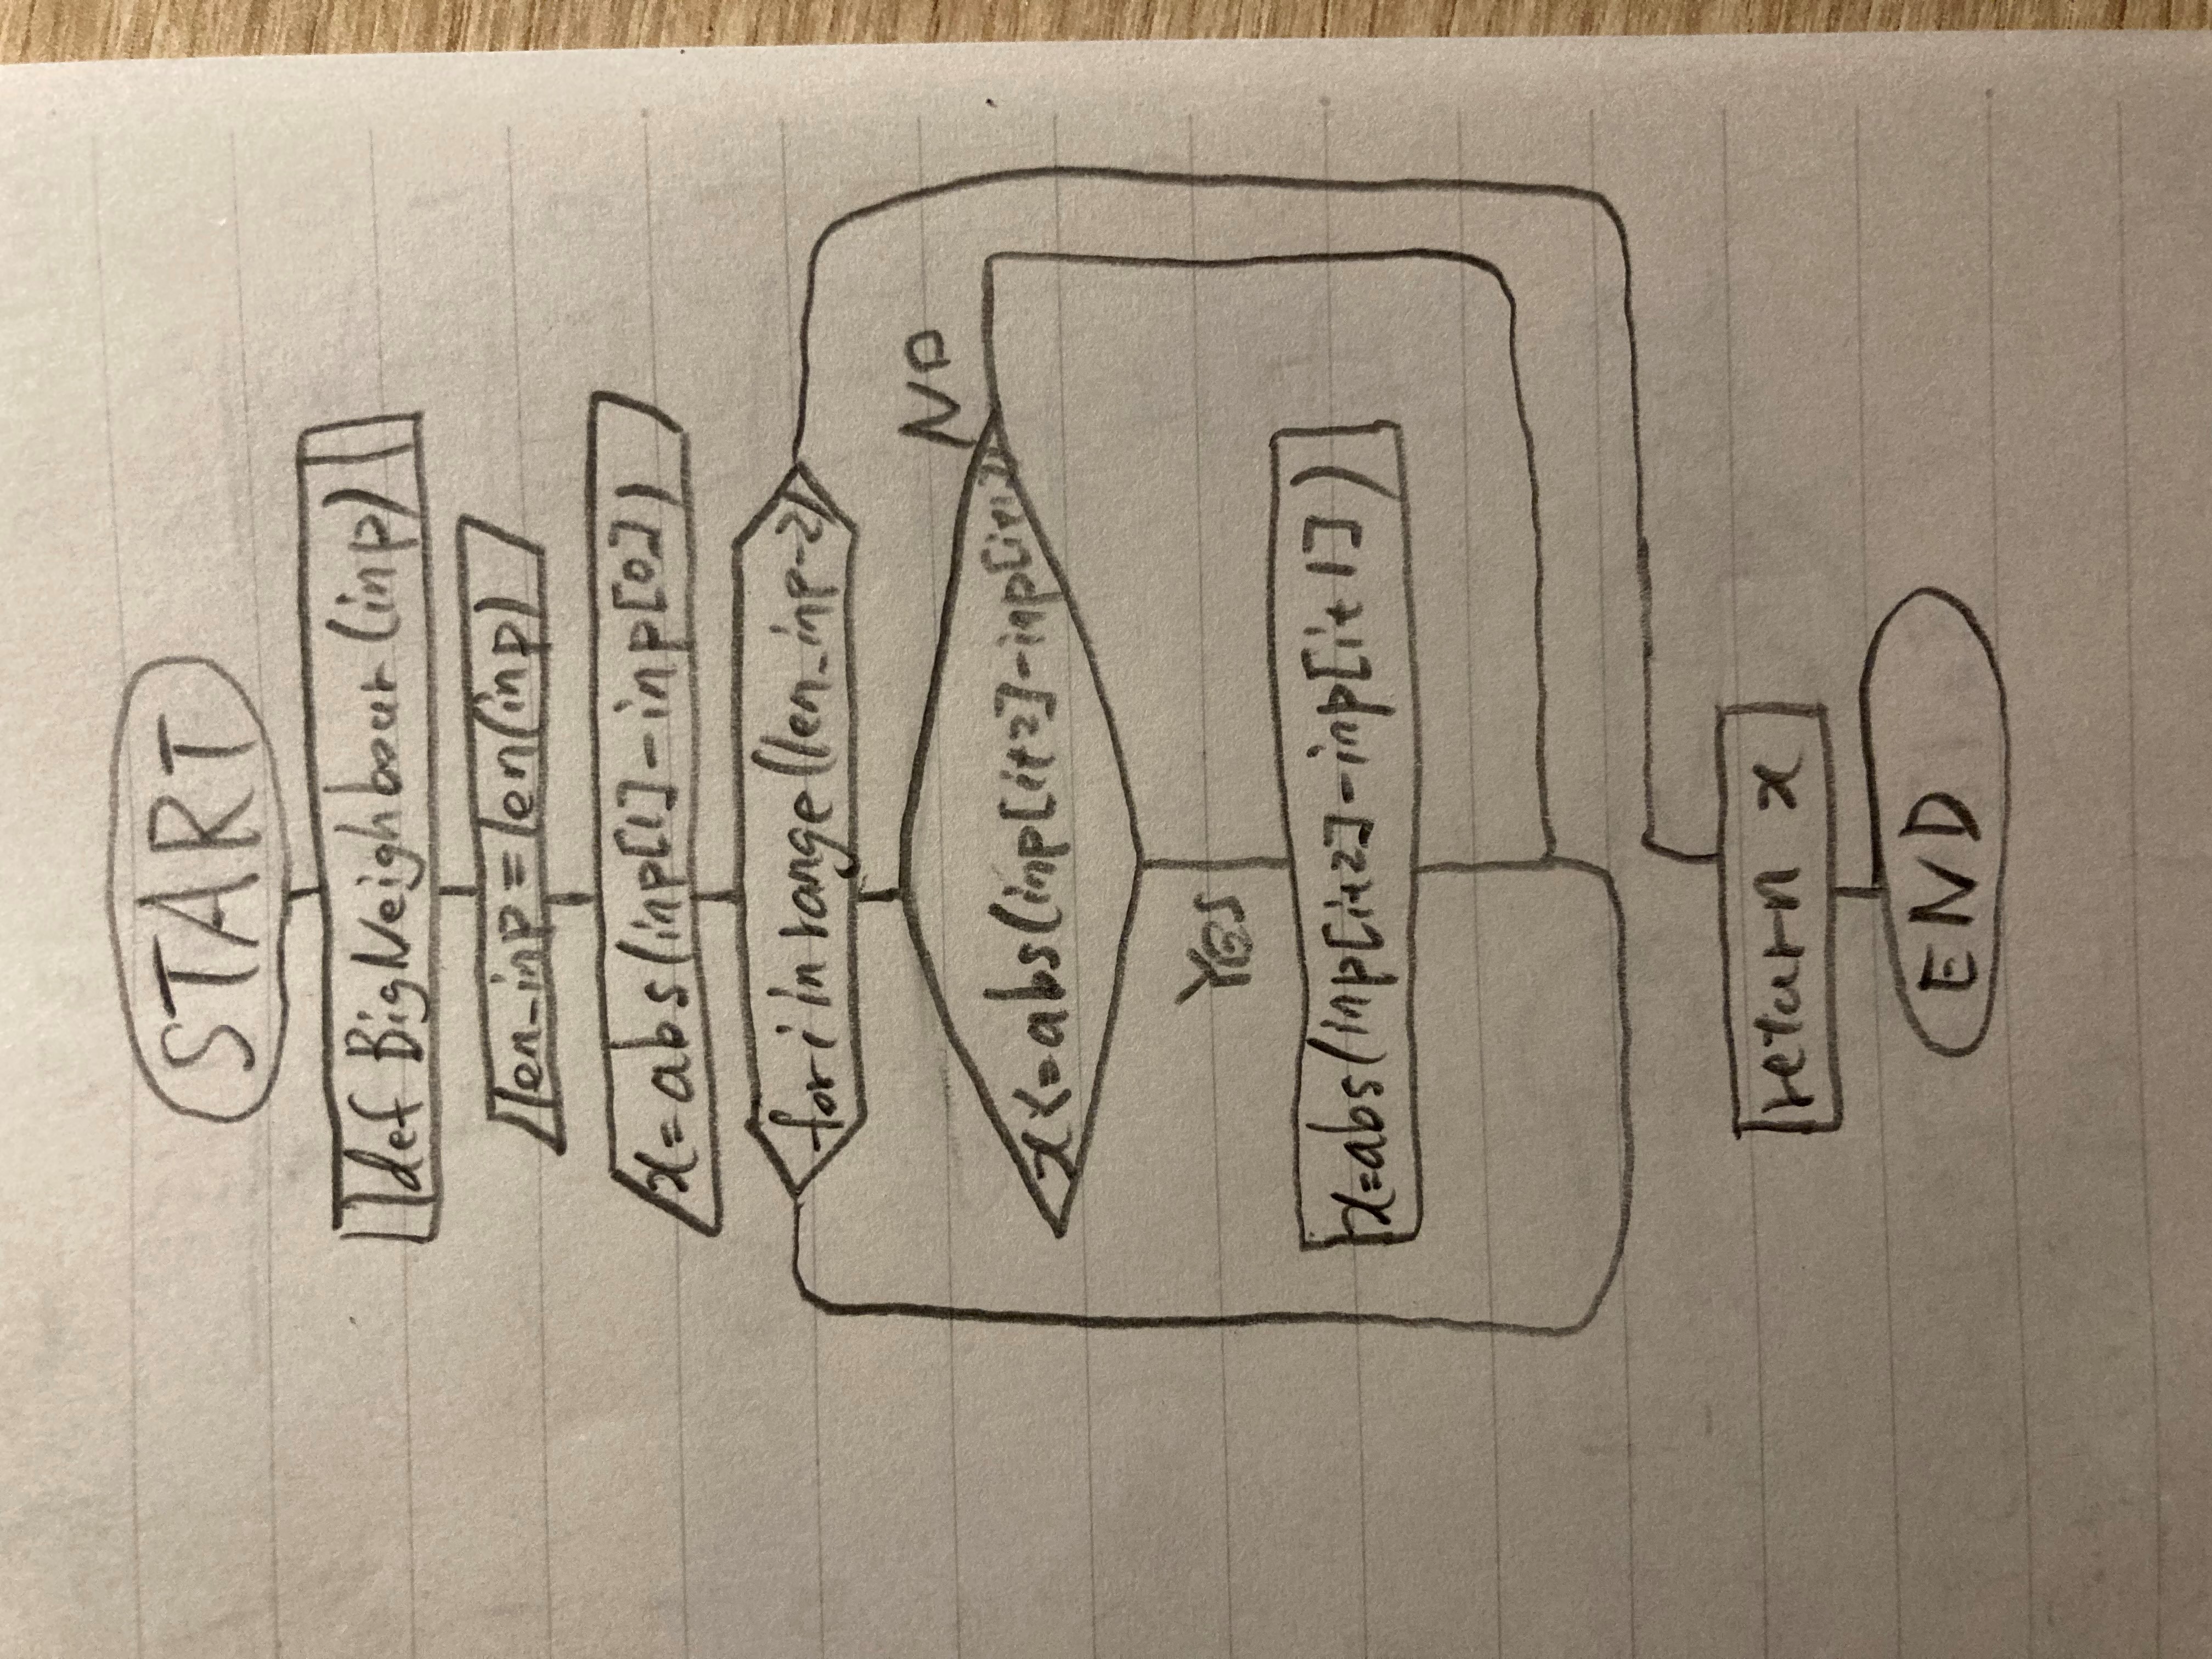 START
def BigNeighbour(inp)
len_inp=len(inp)
x=abs(inp[1]-inp[0])
for i in range(len_inp-2)
x<=abs(inp[i+2]-inp[i+1])
NO
Yes
x=abs(inp[i+2]-inp[i+1])
return x
END